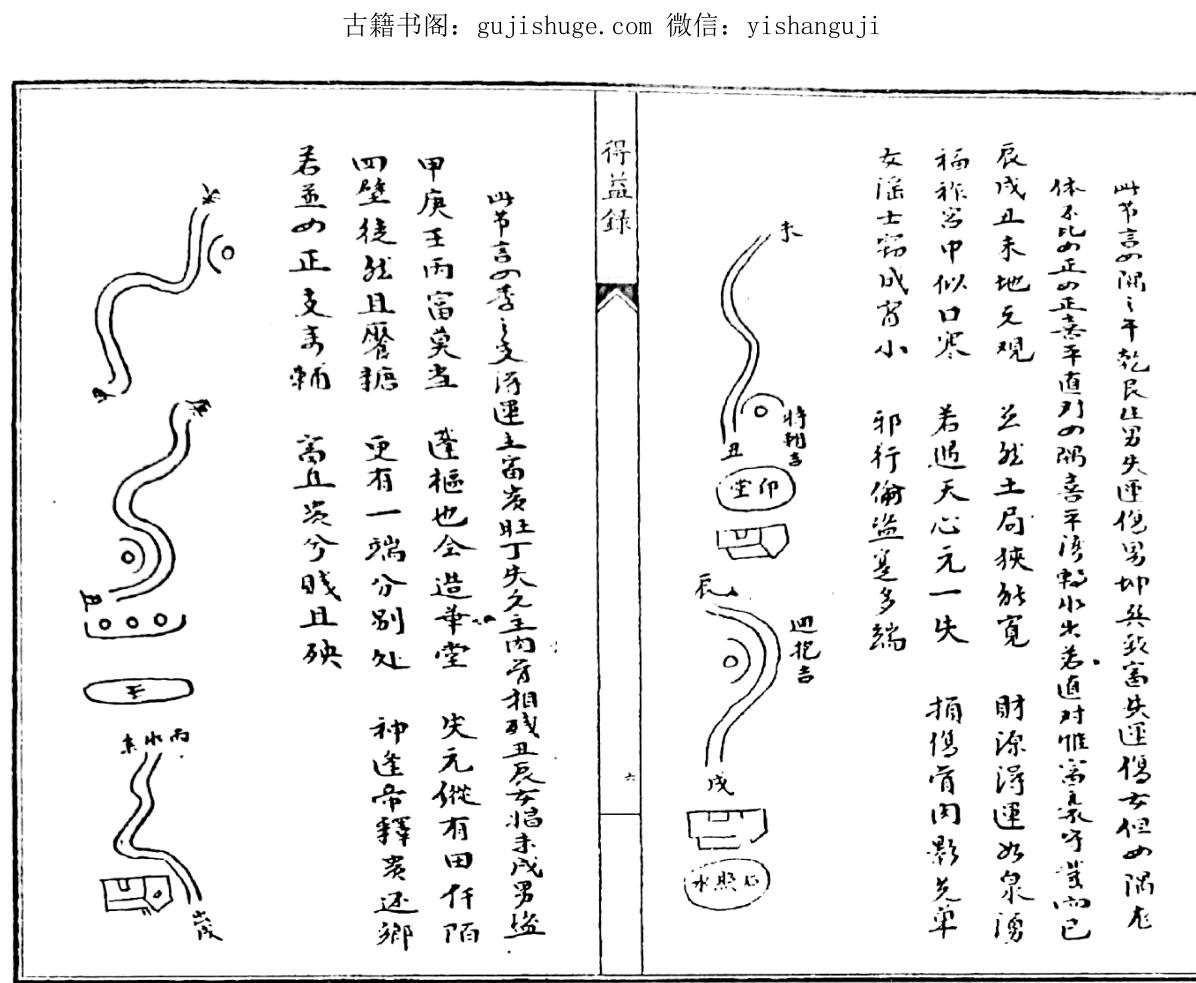 古籍书阁：gujishuge.com 微信：yishanguji
此节言四隅之平乾艮生男失運傷男坤巽致富失運傷女但四隅龙
体不比四正四正喜平直列四隅喜平湾轉水
直对惟富
守業而已
辰戌丑未地无观 土局狭能寬 財源得運如泉湧
福祚宮中似口寒 若遇天心元一失 損傷骨肉影先单
女淫士竊成宵小 邪行偷盜更多端
未
丑
將朝吉
印堂
辰
迴抱吉
戌
后照水
得益録
六
此节言四季之支得運主富贵旺丁失之主内骨相殘丑辰女娼未戌男盜
甲庚壬丙富莫当 逢樞也会造華堂 失元縱有田仟陌
四壁徒然且饜糖 更有一端分别处 神逢帝釋贵还鄉
若並四正支来輔 富且贵兮賤且殃
丑
丙水来